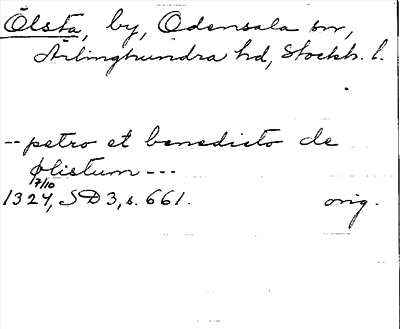 Ölsta, by, Odensala sn,
Ärlinghundra hd, Stockh. l.
-- petro et benedicto de
ølistum ---
7/10
1324, SD 3, s. 661. orig.